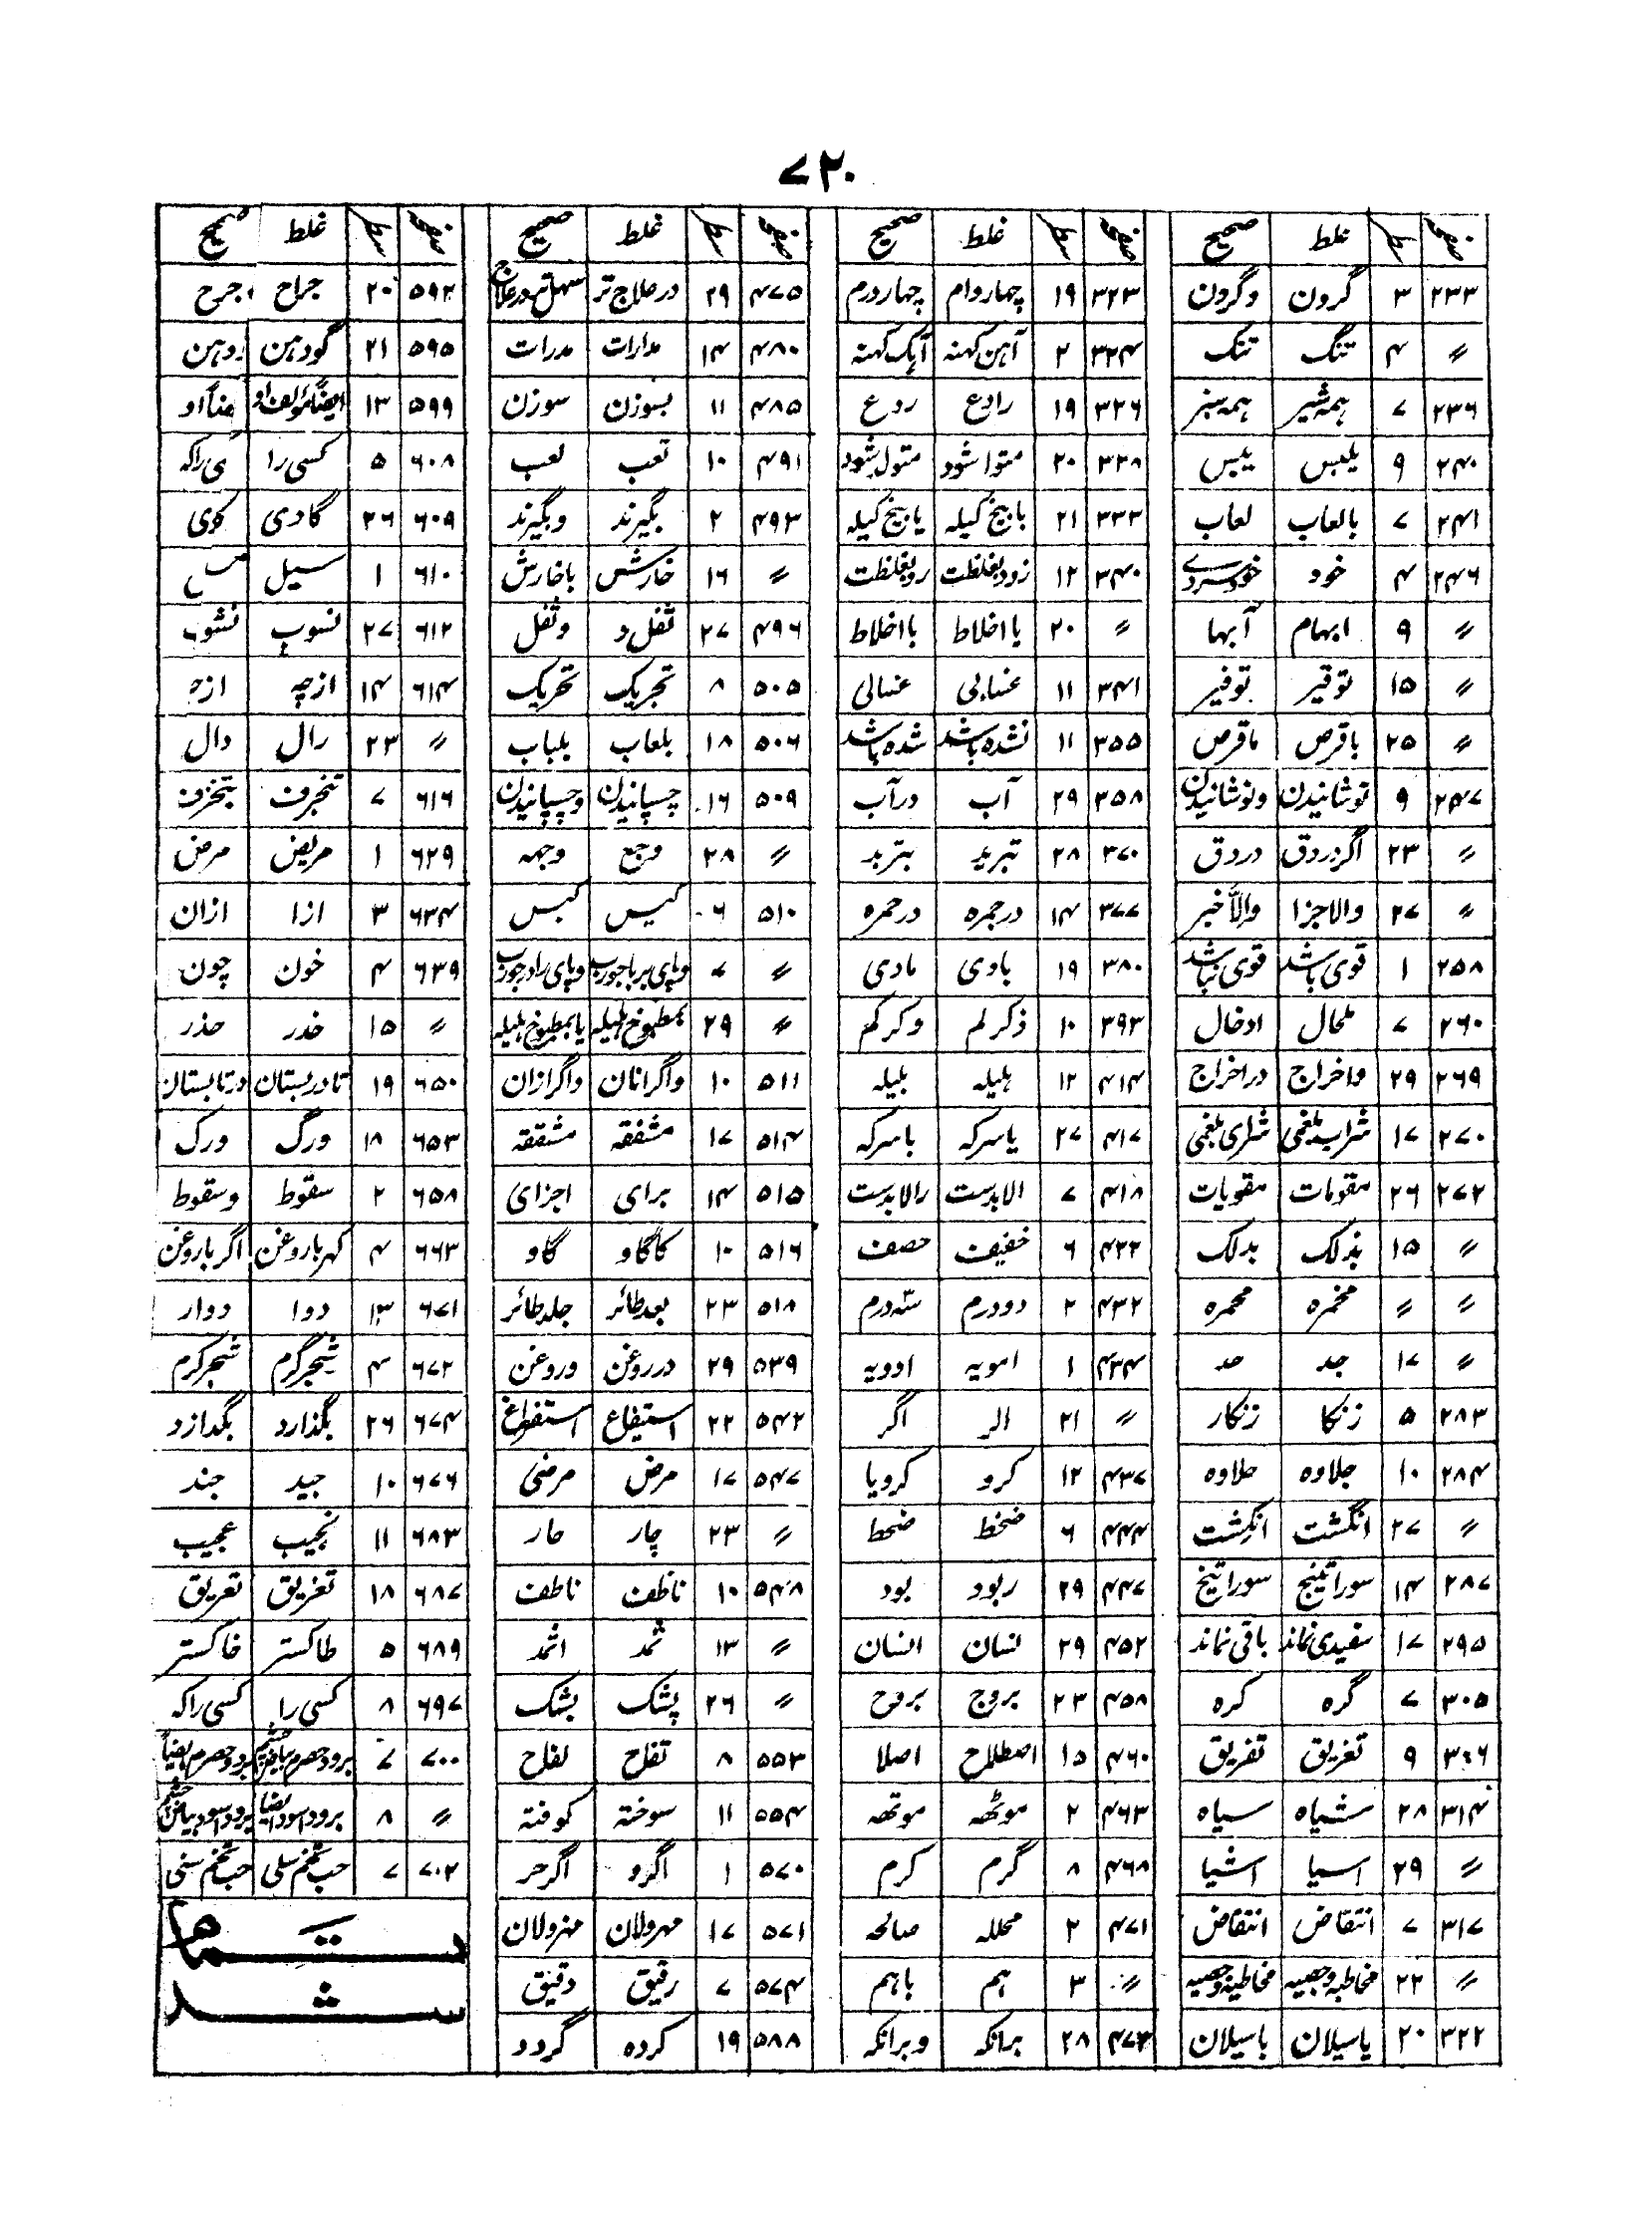 ۷۲۰
صفحہ سطر غلط صحیح
۲۳۳ ۳ گرون وگرون
〃 ۴ تنگ تنک
۲۳۶ ۷ ہمہ شیر ہمہ سبز
۲۴۰ ۹ یلبس یبس
۲۴۱ ۷ بالعاب لعاب
۲۴۶ ۴ خود خود سردے
〃 ۹ ابہام آبہا
〃 ۱۵ توقیر توفیر
〃 ۲۵ باقرص ماقرص
۲۴۷ ۹ نوشانیدن ونوشانیدن
〃 ۲۳ اگر دروق دروق
〃 ۲۷ والاجزا والأخیر
۲۵۸ ۱ قوی باشد قوی نباشد
۲۶۰ ۷ ملحال ادخال
۲۶۹ ۲۹ واخراج دراخراج
۲۷۰ ۱۷ شراب بلغمی شرای بلغمی
۲۷۲ ۲۶ مقومات مقویات
〃 ۱۵ بندلک بدلک
〃 〃 مخمرہ محمرہ
〃 ۱۷ جد حد
۲۸۳ ۵ زنکا زنکار
۲۸۴ ۱۰ جلاوہ حلاوہ
〃 ۲۷ انگشت انکشت
۲۸۷ ۱۴ سوراتنج سوراتیخ
۲۹۵ ۱۷ سفیدی نماند باقی نماند
۳۰۵ ۷ گرہ کرہ
۳۰۶ ۹ تغریق تفریق
۳۱۴ ۲۸ شیاہ سیاہ
〃 ۲۹ اسیا اشیا
۳۱۷ ۷ انتقاض انتقاص
〃 ۲۲ مخاطبہ وجصبیہ مخاطیہ وحصبیہ
۳۲۲ ۲۰ یاسیلان باسیلان
صفحہ سطر غلط صحیح
۳۲۳ ۱۹ چہاروام چہاردرم
۳۲۴ ۲ آہن کہنہ آہک کہنہ
۳۲۶ ۱۹ رادع ردع
۳۲۸ ۲۰ متواشود متولد شود
۳۳۳ ۲۱ بابیخ کیلہ یابیخ کیلہ
۳۴۰ ۱۲ زودبغلظت روبغلظت
〃 ۲۰ یااخلاط بااخلاط
۳۴۱ ۱۱ غسابی غسالی
۳۵۵ ۱۱ نشدہ باشد شدہ باشد
۳۵۸ ۲۹ آب درآب
۳۷۰ ۲۸ تبرید بتربد
۳۷۷ ۱۴ درجمرہ درحمرہ
۳۸۰ ۱۹ بادی مادی
۳۹۳ ۱۰ ذکر لم وکرکم
۴۱۴ ۱۲ ہلیلہ بلیلہ
۴۱۷ ۲۷ یاسرکہ باسرکہ
۴۱۸ ۷ الابدست رالابدست
۴۲۲ ۶ خفیف حصف
۴۳۲ ۲ دودرم ستہ درم
۴۳۴ ۱ امویہ ادویہ
〃 ۲۱ الر اگر
۴۳۷ ۱۲ کرو کرویا
۴۴۴ ۶ ضخط ضحط
۴۴۷ ۲۹ ربود بود
۴۵۲ ۲۹ لنسان انسان
۴۵۸ ۲۳ بروج بروح
۴۶۰ ۱۵ اصطلاح اصلا
۴۶۳ ۲ موٹھہ موتھہ
۴۶۸ ۸ گرم کرم
۴۷۱ ۲ محللہ صالحہ
〃 ۳ ہم باہم
۴۷۳ ۲۸ برانکہ وبرانکہ
صفحہ سطر غلط صحیح
۴۷۵ ۲۹ درعلاج تر سہل تر درعلاج
۴۸۰ ۱۴ مدارات مدرات
۴۸۵ ۱۱ بسوزن سوزن
۴۹۱ ۱۰ تعب لعب
۴۹۳ ۲ بگیرند وبگیرند
〃 ۱۶ خارش باخارش
۴۹۶ ۲۷ ثقل و وثقل
۵۰۵ ۸ تجریک تحریک
۵۰۶ ۱۸ بلعاب بلباب
۵۰۹ ۱۶ چسپانیدن وچسپانیدن
〃 ۲۸ وجع وجہہ
۵۱۰ ۶ کیس کبس
〃 ۷ وپای برباجورب وپای رادرجورب
〃 ۲۹ بمطبوخ ہلیلہ یابمطبوخ ہلیلہ
۵۱۱ ۱۰ واگرانان واگرازان
۵۱۴ ۱۷ مشفقہ مشققہ
۵۱۵ ۱۴ برای اجزای
۵۱۶ ۱۰ کاگاو گاو
۵۱۸ ۲۳ بعد طائر جلد طائر
۵۳۹ ۲۹ درروغن وروغن
۵۴۲ ۲۲ استیفاع استفراغ
۵۴۷ ۱۷ مرض مرضی
〃 ۲۳ چار حار
۵۴۸ ۱۰ ناظف ناطف
〃 ۱۳ ثمد اثمد
〃 ۲۶ پشک بشک
۵۵۳ ۸ تفلح لفلح
۵۵۴ ۱۱ سوختہ کوفتہ
۵۷۰ ۱ اگرو اگرحر
۵۷۱ ۱۷ مہرولان مہزولان
۵۷۴ ۷ رقیق دقیق
۵۸۸ ۱۹ کردہ گردد
صفحہ سطر غلط صحیح
۵۹۲ ۲۰ جراح جرح
۵۹۵ ۲۱ گودہن روہن
۵۹۹ ۱۳
۶۰۸ ۵ کسی را ی راکہ
۶۰۹ ۲۶ گادی کوی
۶۱۰ ۱ سیل
۶۱۲ ۲۷ نسوب نشوب
۶۱۴ ۱۴ ازچہ
〃 ۲۳ رال دال
۶۱۶ ۷ تنجرف
۶۲۹ ۱ مریض مرض
۶۳۴ ۳ ازا ازان
۶۳۹ ۴ خون چون
〃 ۱۵ خدر حذر
۶۵۰ ۱۹ تادربستان درتابستان
۶۵۳ ۱۸ ورگ ورک
۶۵۸ ۲ سقوط وسقوط
۶۶۳ ۴ کہرباروغن اگرباروغن
۶۷۱ ۱۳ دوا دوار
۶۷۲ ۴
۶۷۴ ۲۶ بگذارد بگدازد
۶۷۶ ۱۰ جید جند
۶۸۳ ۱۱ نجیب عجیب
۶۸۷ ۱۸ تغریق تعریق
۶۸۹ ۵ طاکستر خاکستر
۶۹۷ ۸ کسی را کسی راکہ
۷۰۰ ۷
〃 ۸
۷۰۲ ۷
تمام
شد